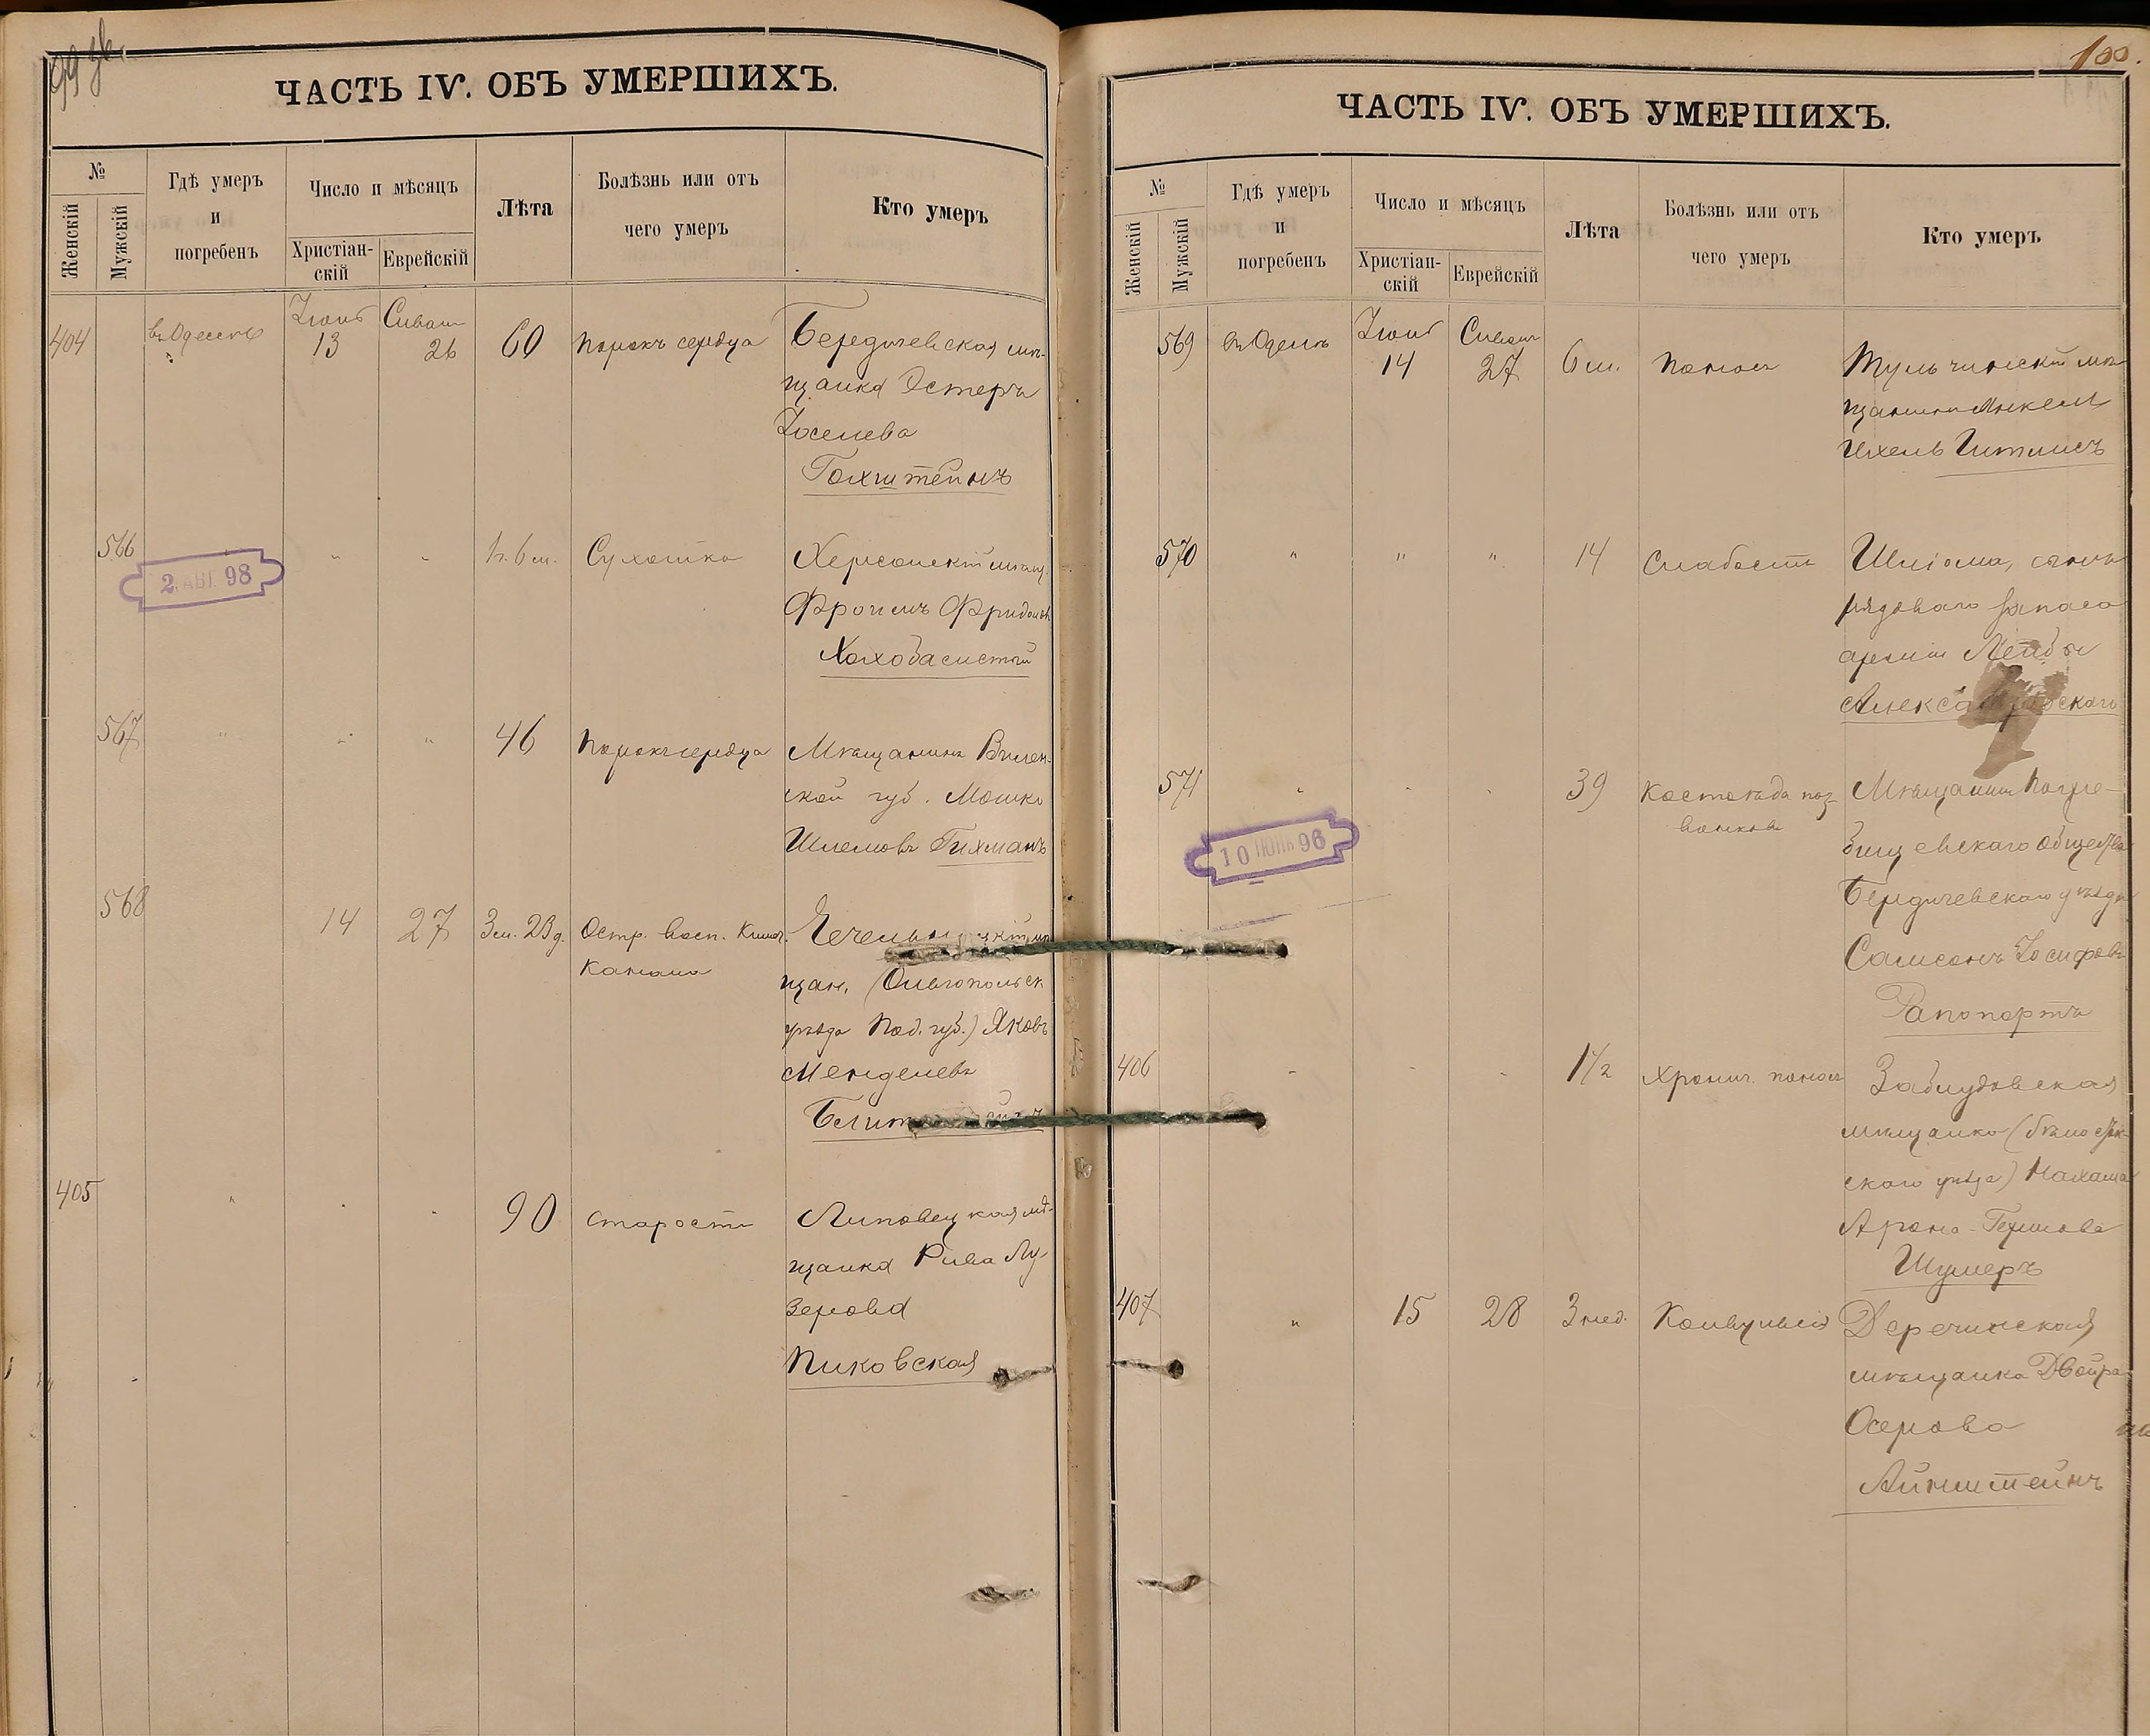 99 об.
ЧАСТЬ IV. ОБЪ УМЕРШИХЪ.
№
Женскій
Мужскій
Гдѣ умеръ
и
погребенъ
Число и мѣсяцъ
Христіан-
скій
Еврейскій
Лѣта
Болѣзнь или отъ
чего умеръ
Кто умеръ
404 въ Одессѣ Іюнь 13 Сиванъ 26 60 Порокъ сердца Бердичевская мѣ-
щанка Эстеръ
Іоселева
Гохштейнъ
566 " " 1 г. 6 м. Сухотка Херсонскій мѣщ.
Фроимъ
Холхобасистый
2 АВГ. 98
567 " " " 46 Порокъ сердца Мѣщанинъ Вилен-
ской губ. Мошко
Шлемовъ Гихманъ
568 14 27 3 м. 23 д. Остр. восп. кишеч.
канала
щан. (Ольгопольск.
уѣзда Под. губ.) Яковъ
Менделевъ
405 " " " 90 Старость Липовецкая мѣ-
щанка Рива Лу-
зерова
Пиковская
100.
ЧАСТЬ IV. ОБЪ УМЕРШИХЪ.
№
Женскій
Мужскій
Гдѣ умеръ
и
погребенъ
Число и мѣсяцъ
Христіан-
скій
Еврейскій
Лѣта
Болѣзнь или отъ
чего умеръ
Кто умеръ
569 въ Одессѣ Іюнь 14 Сиванъ 27 6 м. Поносъ Тульчинскій мѣ-
щанинъ Янкель
Ихель
570 " " " 14 Слабость Шлiома, сынъ
рядового запаса
арміи Лейбы
Александровскаго
571 " " " 39 Костоѣда поз-
вонковъ Мѣщанинъ Погре-
бищевскаго общества
Бердичевскаго уѣзда
Самсонъ Іосифовъ
Рапопортъ
10 ИЮНЬ 98
406 " " " 1 1/2 Хронич. поносъ Заблудовская
мѣщанка (Бѣлосток-
скаго уѣзда) Нахама
Арона-Гершова
Шумеръ
407 " 15 28 3 нед. Конвульсіи Деречинская
мѣщанка Двойра
Осерова
Айнштейнъ